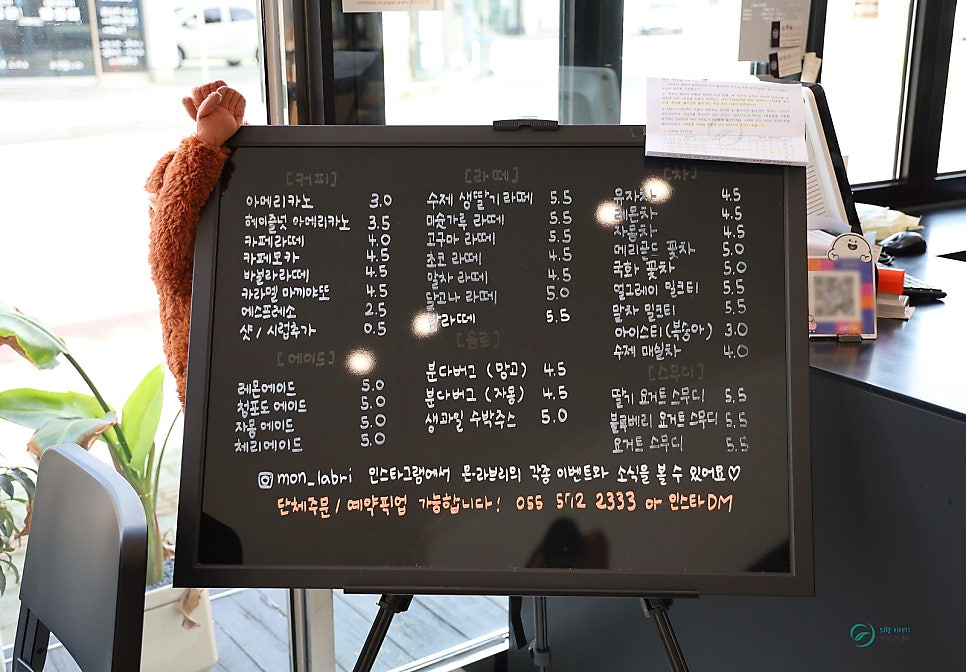 [커피]
아메리카노 3.0
헤이즐넛 아메리카노 3.5
카페라떼 4.0
카페모카 4.5
바닐라라떼 4.5
카라멜 마끼야또 4.5
에스프레소 2.5
샷 / 시럽추가 0.5
[에이드]
레몬에이드 5.0
청포도 에이드 5.0
자몽 에이드 5.0
체리에이드 5.0
[라떼]
수제 생딸기라떼 5.5
미숫가루 라떼 5.5
고구마 라떼 5.5
초코 라떼 4.5
말차 라떼 4.5
달고나 라떼 5.0
라떼 5.5
[음료]
분다버그 (망고) 4.5
분다버그 (자몽) 4.5
생과일 수박주스 5.0
[차]
유자차 4.5
레몬차 4.5
자몽차 4.5
메리골드 꽃차 5.0
국화 꽃차 5.0
얼그레이 밀크티 5.5
말차 밀크티 5.5
아이스티(복숭아) 3.0
수제 매실차 4.0
[스무디]
딸기 요거트 스무디 5.5
블루베리 요거트 스무디 5.5
요거트 스무디 5.5
mon_labri 인스타그램에서 몬라브리의 각종 이벤트와 소식을 볼 수 있어요♡
단체주문 / 예약픽업 가능합니다! 055 572 2333 or 인스타DM